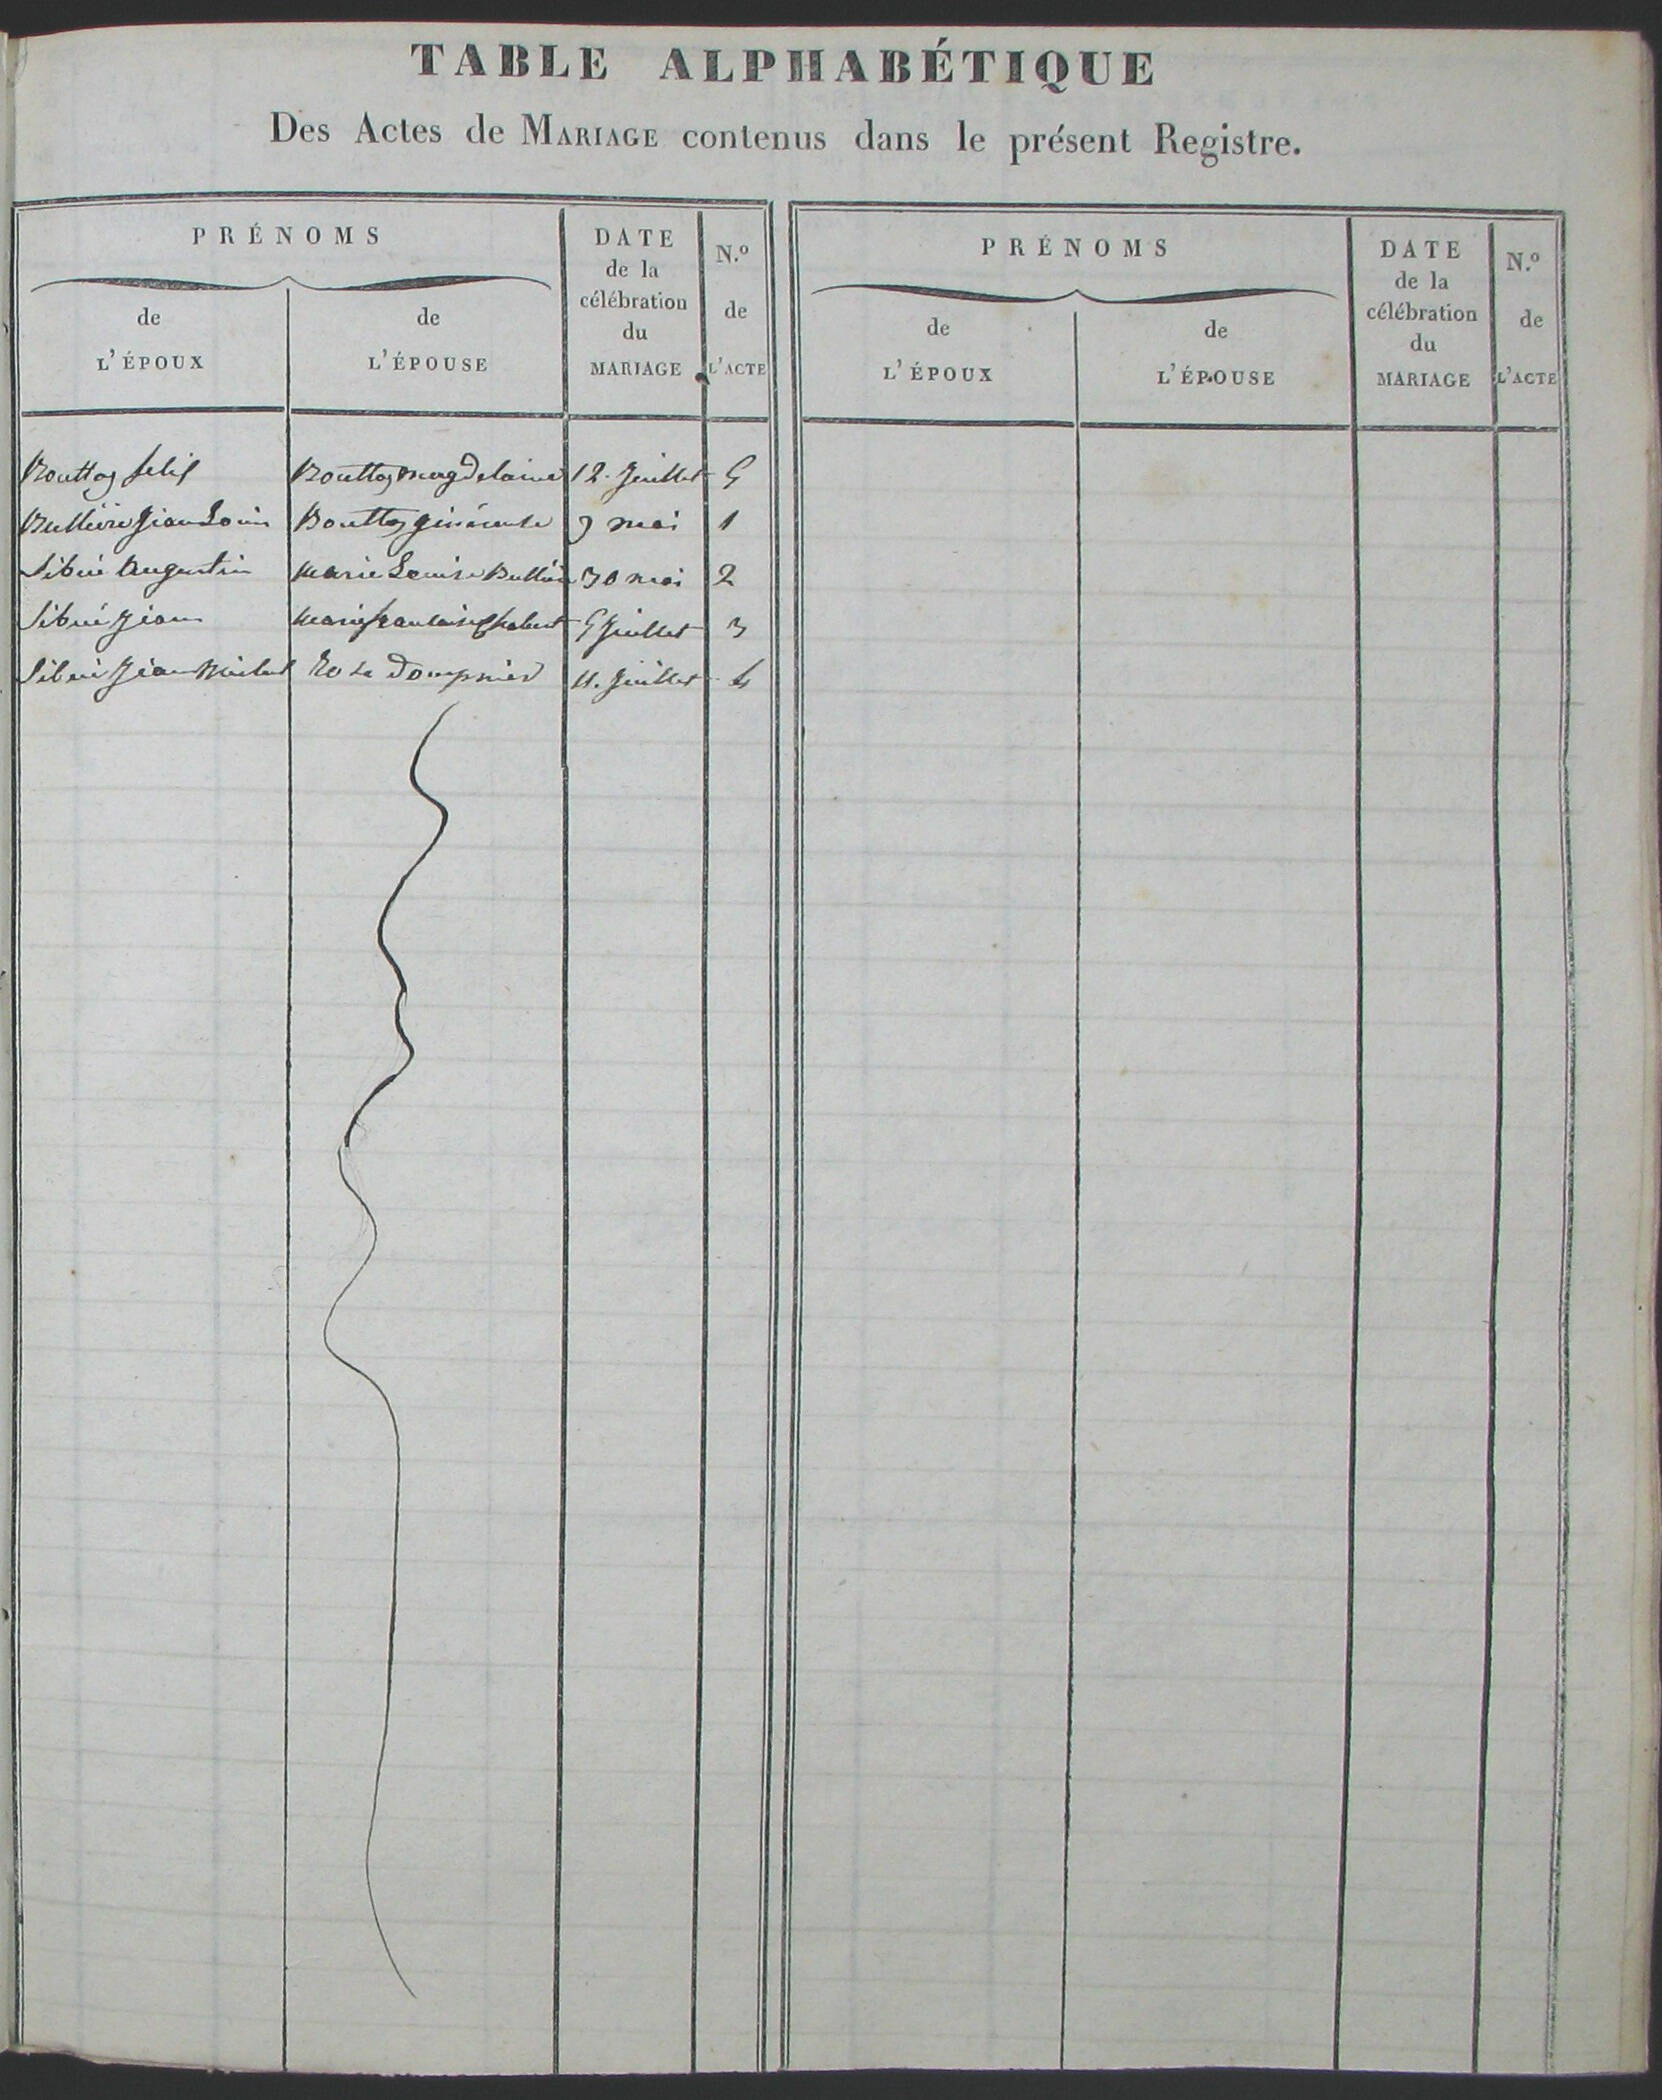 TABLE ALPHABÉTIQUE
Des Actes de MARIAGE contenus dans le présent Registre.
PRÉNOMS
de
L'ÉPOUX
de
L'ÉPOUSE
DATE
de la
célébration
du
MARIAGE
N.º
de
L'ACTE
PRÉNOMS
de
L'ÉPOUX
de
L'ÉPOUSE
DATE
de la
célébration
du
MARIAGE
N.º
de
L'ACTE
Bouttaz felix Bouttaz magdelaine 12. Juillet 5
Jean Louis Bouttaz 9 mai 1
Sibué Augustin Marie Louise 30 mai 2
Sibué Jean Marie 5 Juillet 3
Sibué Jean Michel Rose Dompnier 11. Juillet 4